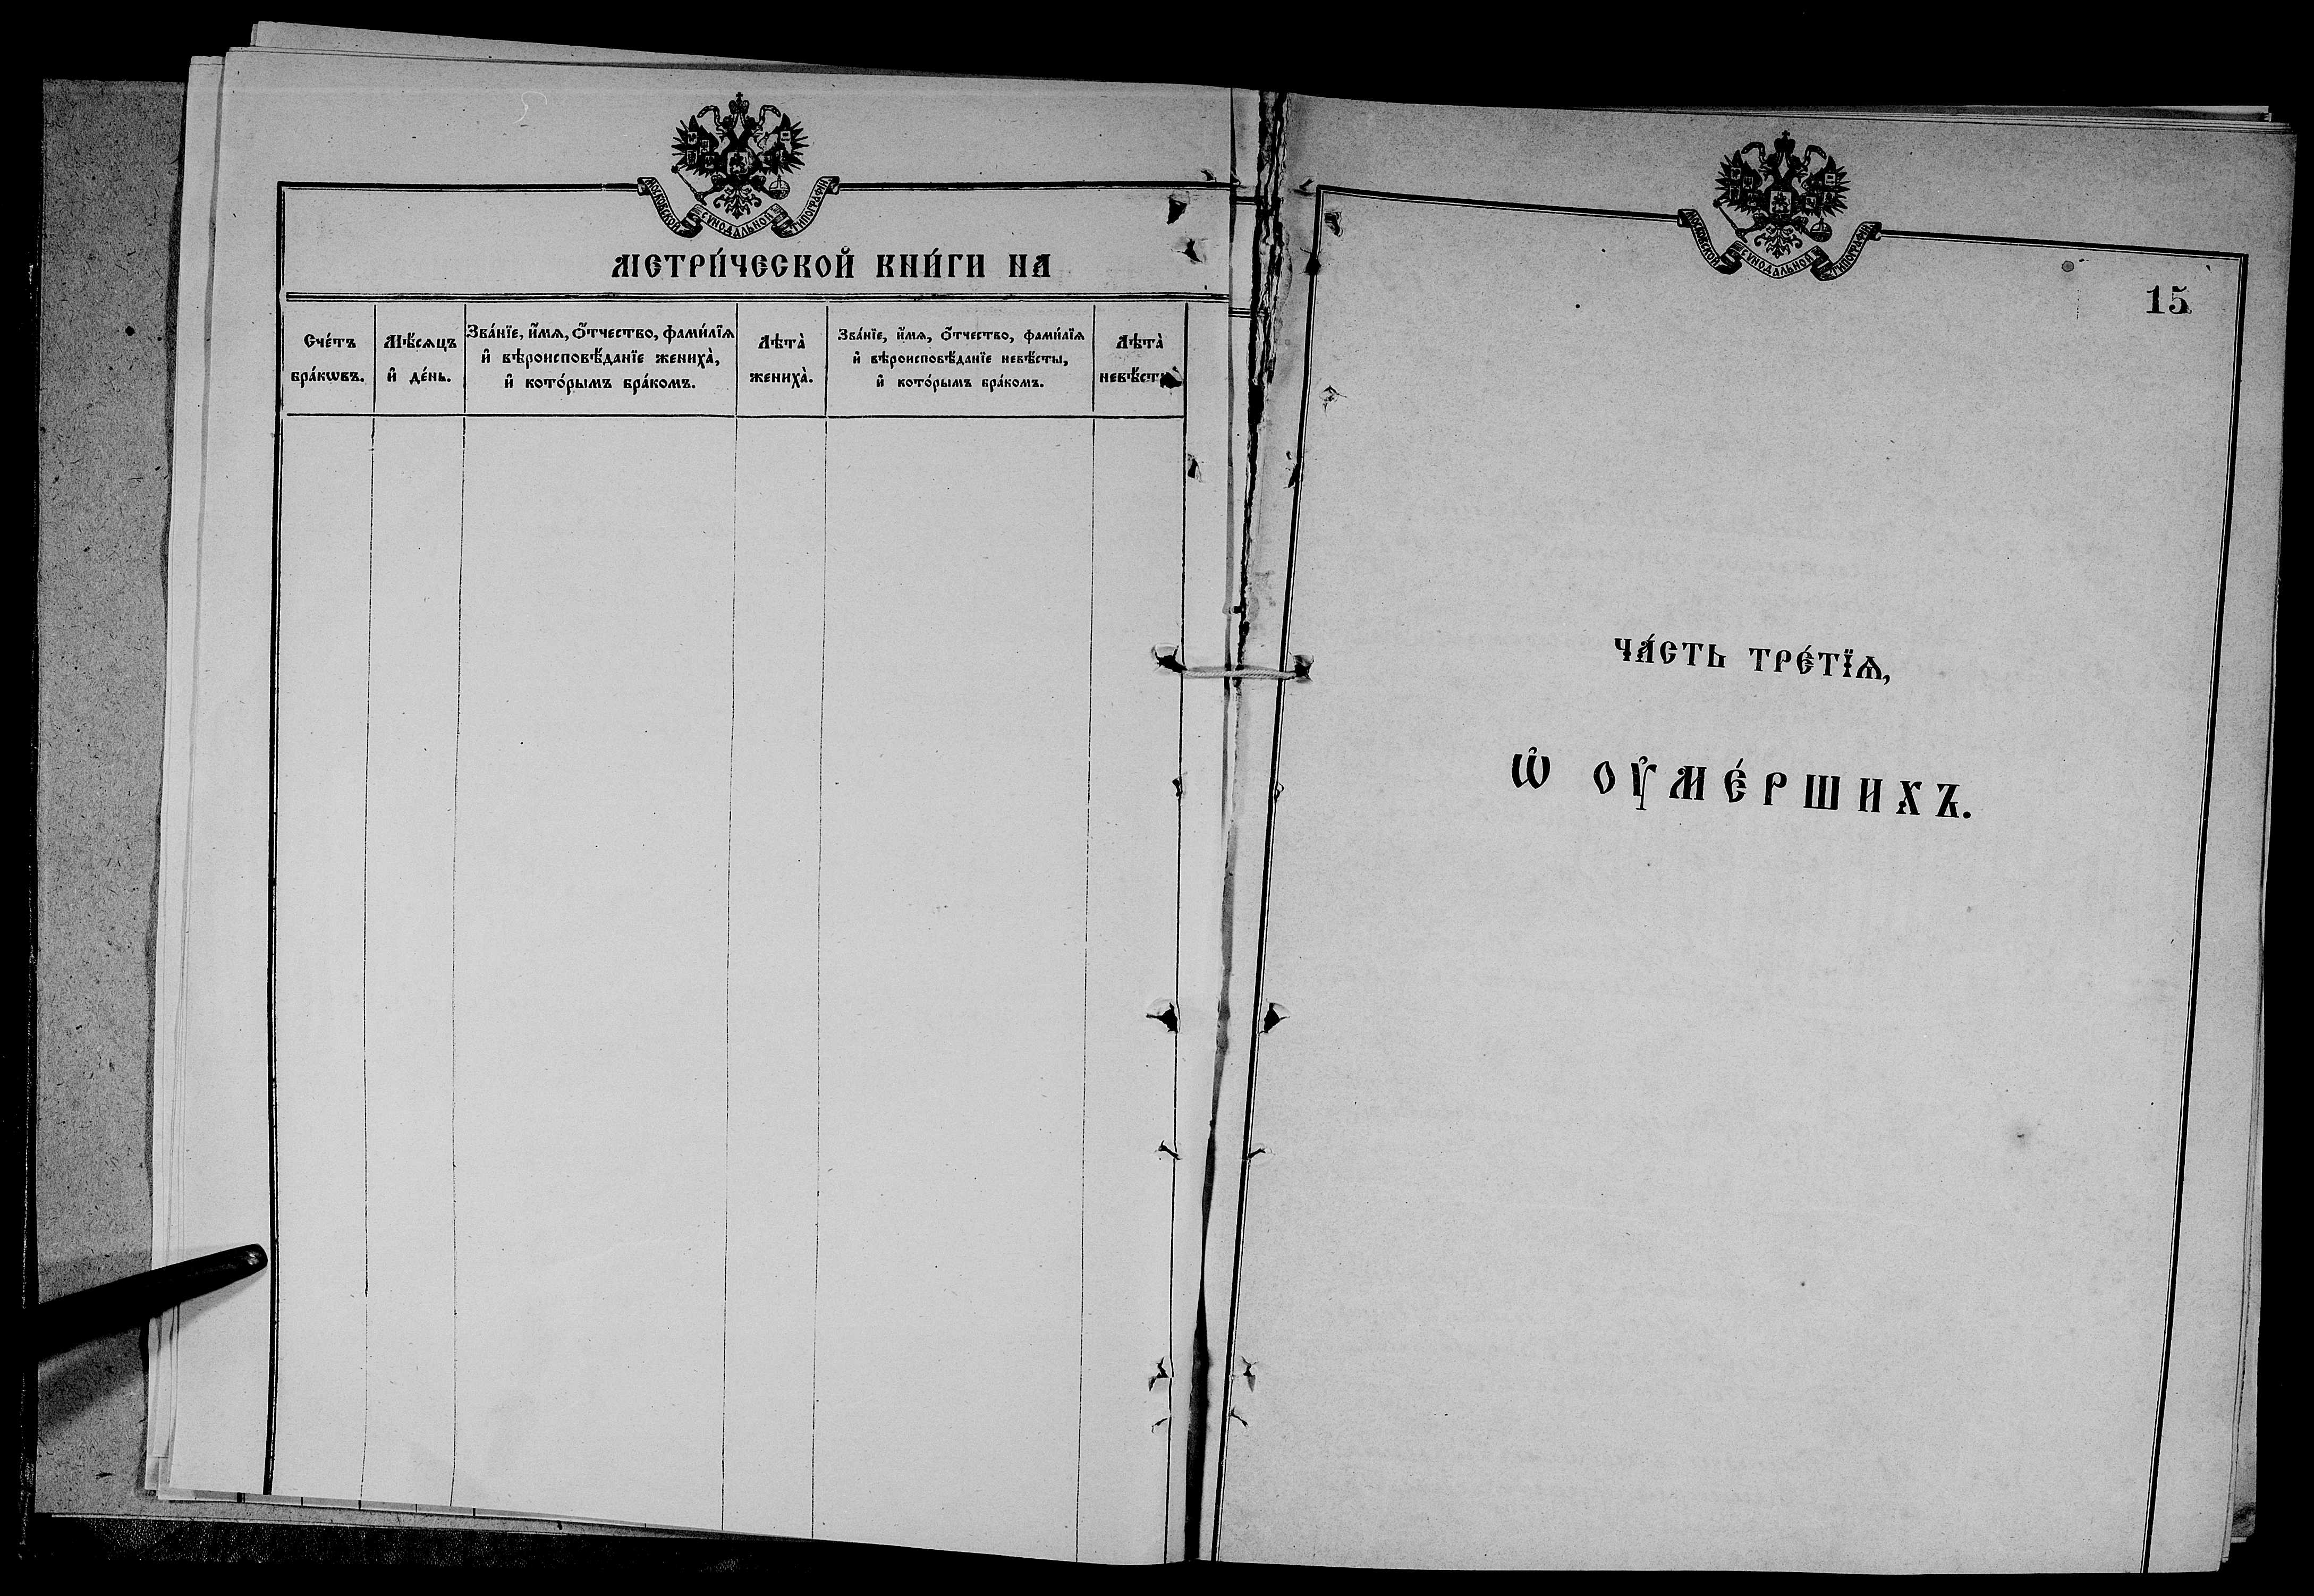 МОСКОВСКОЙ СѴНОДАЛЬНОЙ ТИПОГРАФІИ
МЕТРИ́ЧЕСКОЙ КНИ́ГИ НА
Сче́тъ
бра́кѡвъ.
Мѣ́сяцъ
и҆ де́нь.
Зва́нїе, и҆́мѧ, ѻ҆́тчество, фамі́лїѧ
и҆ вѣроисповѣ́данїе жениха̀,
и҆ кото́рымъ бра́комъ.
Лѣта̀
жениха̀.
Зва́нїе, и҆́мѧ, ѻ҆́тчество, фами́лїѧ
и҆ вѣроисповѣ́данїе невѣ́сты,
и҆ кото́рымъ бра́комъ.
Лѣта̀
невѣ́сты.
МОСКОВСКОЙ СѴНОДАЛЬНОЙ ТИПОГРАФІИ
15
ЧА́СТЬ ТРЕ́ТЇѦ,
Ѡ҆ ОУ҆МЕ́РШИХЪ.